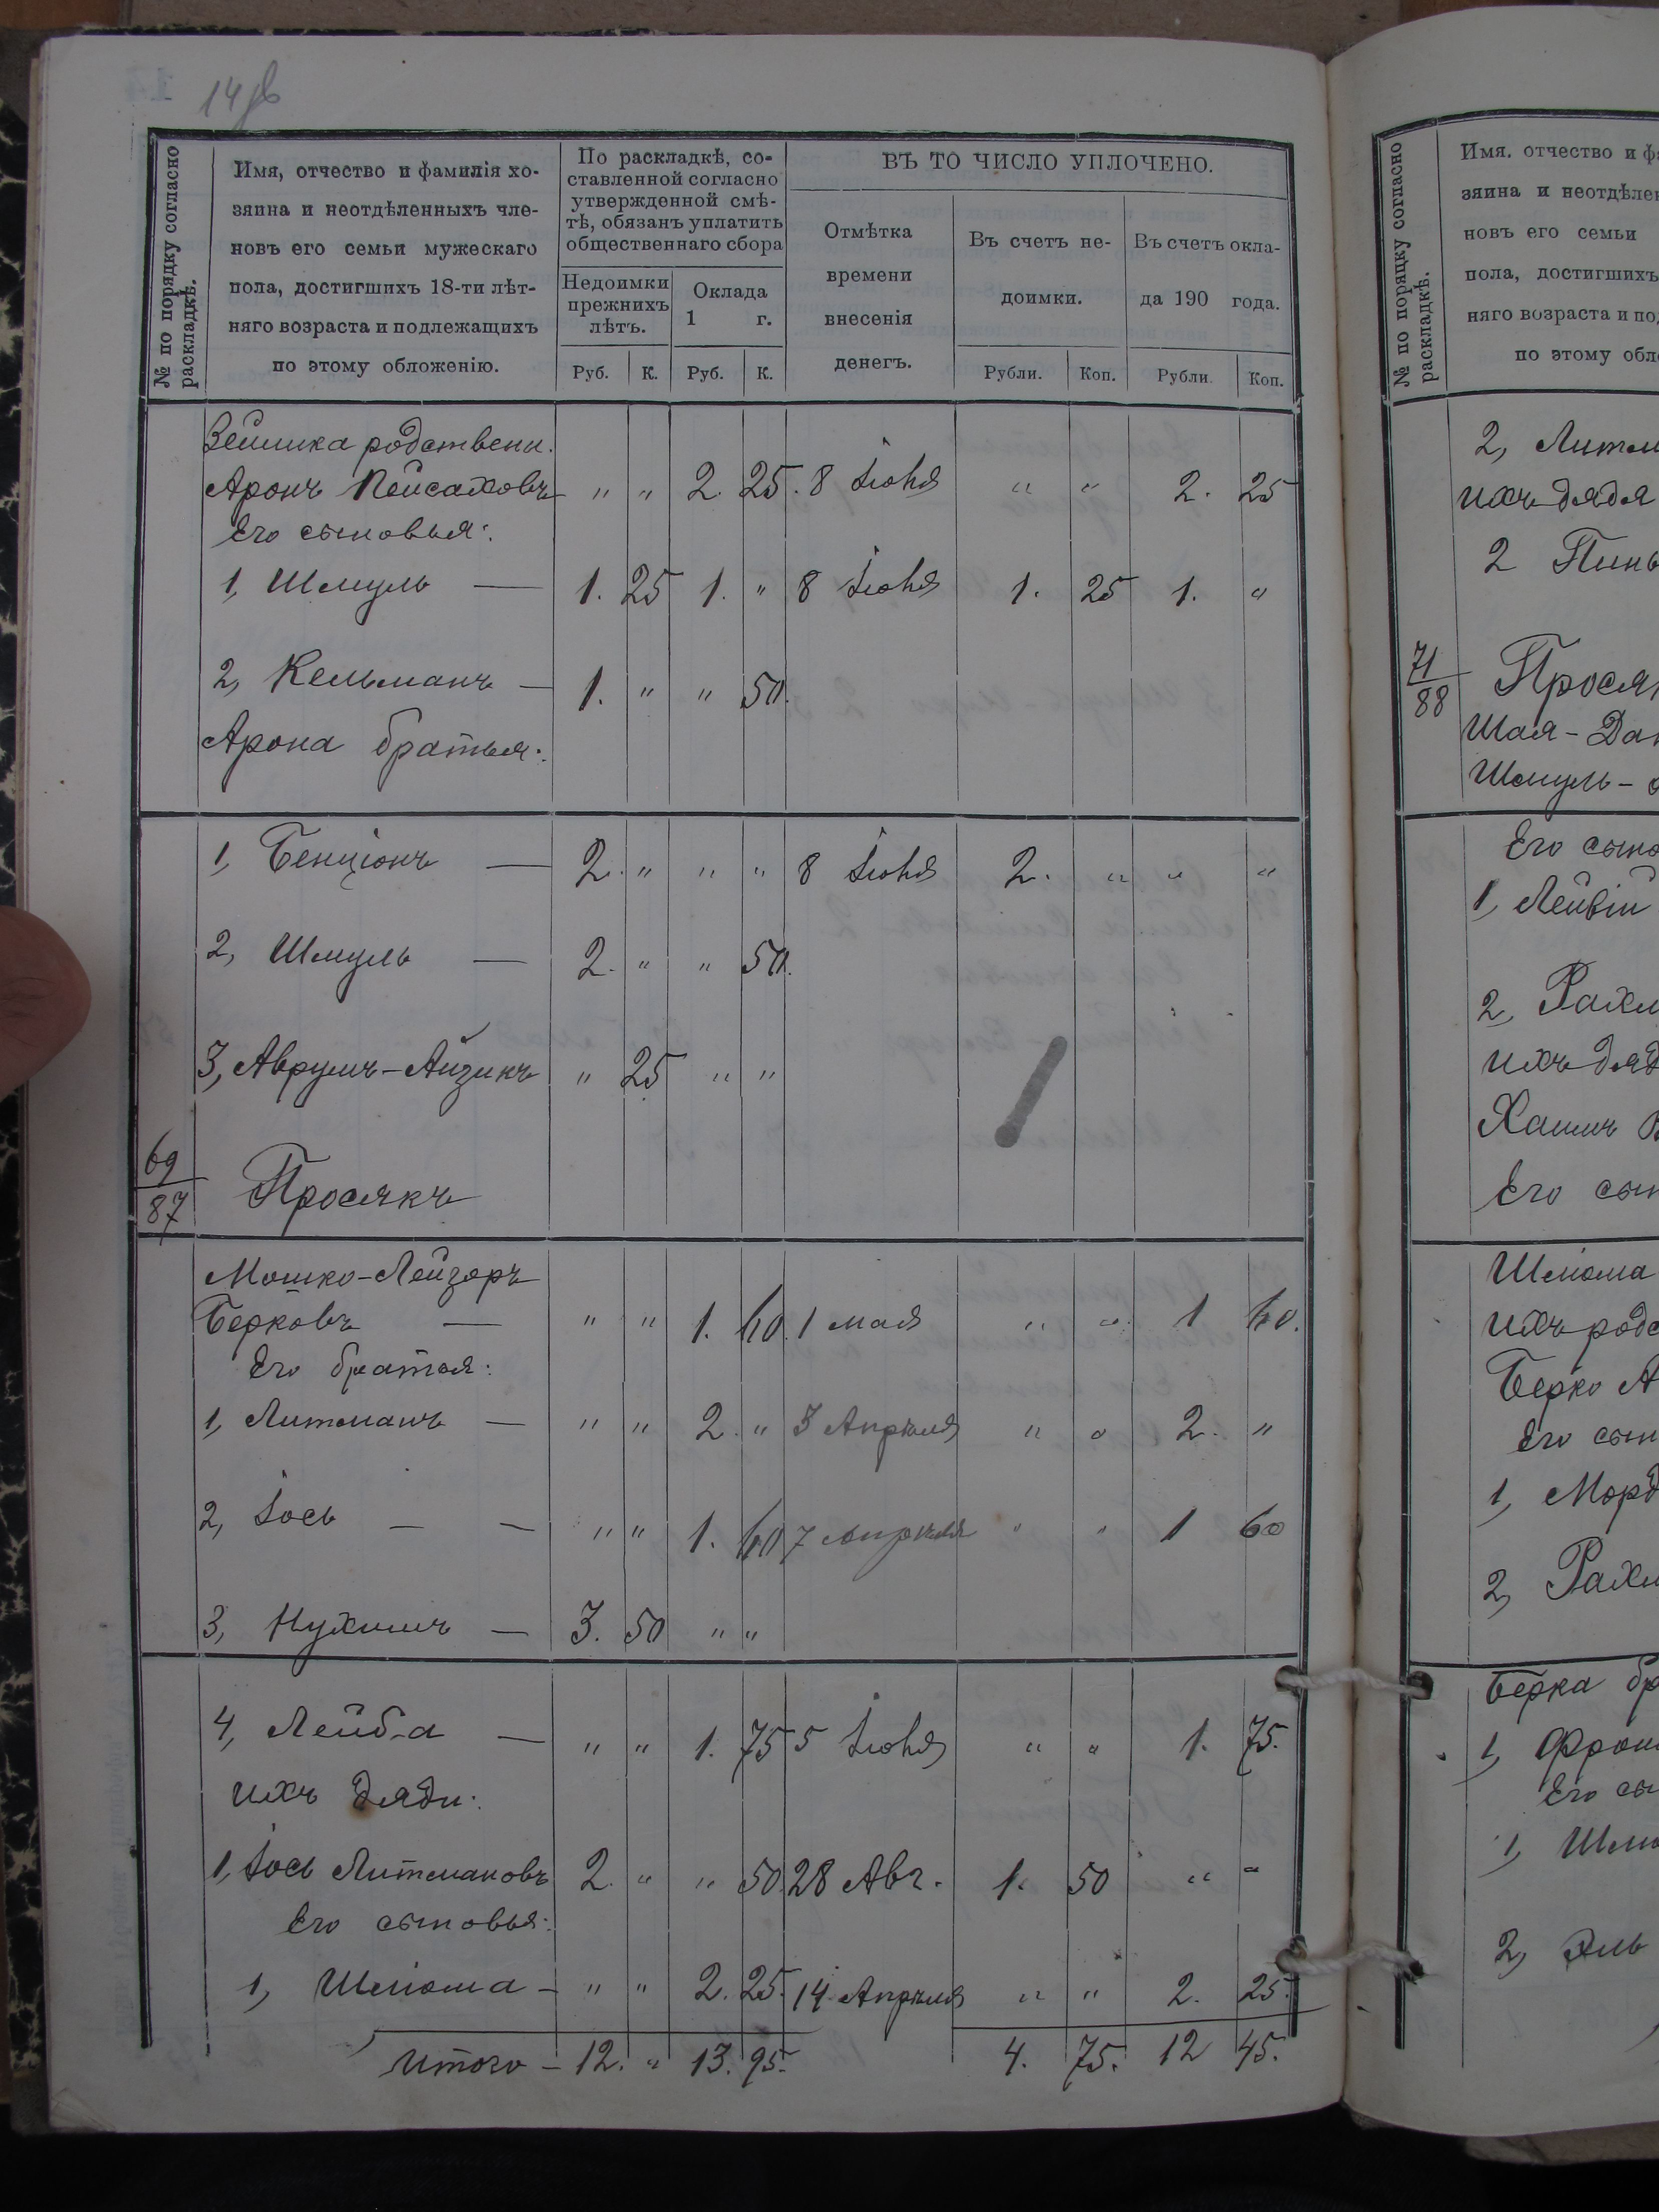 14 об
№ по порядку согласно раскладкѣ.
Имя, отчество и фамилія хо-
зяина и неотдѣленныхъ чле-
новъ его семьи мужескаго
пола, достигшихъ 18-ти лѣт-
няго возраста и подлежащихъ
по этому обложенію.
По раскладкѣ, со-
ставленной согласно
утвержденной смѣ-
тѣ, обязанъ уплатить
общественнаго сбора
Недоимки прежнихъ лѣтъ.
Оклада 1 г.
Руб. К. Руб. К.
ВЪ ТО ЧИСЛО УПЛОЧЕНО.
Отмѣтка
времени
внесенія
денегъ.
Въ счетъ не-
доимки.
Въ счетъ окла-
да 190 года.
Рубли. Коп. Рубли. Коп.
родствени.
Аронъ Пейсаховъ " " 2. 25. 8 Іюня " " 2. 25
Его сыновья:
1, Шмуль — 1. 25 1. " 8 Іюня 1. 25 1. "
2, Кельманъ — 1. " " 50.
Арона братья:
1, Бенціонъ — 2. " " " 8 Іюня 2. " " "
2, Шмуль — 2. " " 50.
3, Аврумъ-Айзикъ " 25 " "
69/87 Просякъ
Мошко-Лейзоръ
Берковъ — " " 1. 60. 1 мая " " 1 60.
Его братья:
1, Литманъ — " " 2. " 3 Апрѣля " " 2. "
2, Іось — — " " 1. 60 7 апрѣля " " 1 60
3, Нухимъ — 3. 50 " "
4, Лейба — " " 1. 75 5 Іюня " " 1. 75.
ихъ дяди:
1, Іось Литмановъ 2. " " 50. 28 Авг. 1. 50 " "
Его сыновья:
1, Шліома — " " 2. 25. 14 Апрѣля " " 2. 25.
Итого — 12. " 13. 95. 4. 75. 12 45.
№ по порядку согласно раскладкѣ.
Имя. отчество и ф
зяина и неотдѣлен
новъ его семьи
пола, достигшихъ
няго возраста и под
по этому обло
2, Литм
ихъ дядя
2 Пинь
71/88 Прося
Шая-Дан
Шмуль-
Его сыно
1, Лейвій
2, Рахм
ихъ дяд
Хаимъ
Его сын
Шліома
ихъ родс
Берко А
Его сын
1, Морд
2, Рахм
Берка бр
1, Фрои
Его сы
1, Шлі
2, Эль